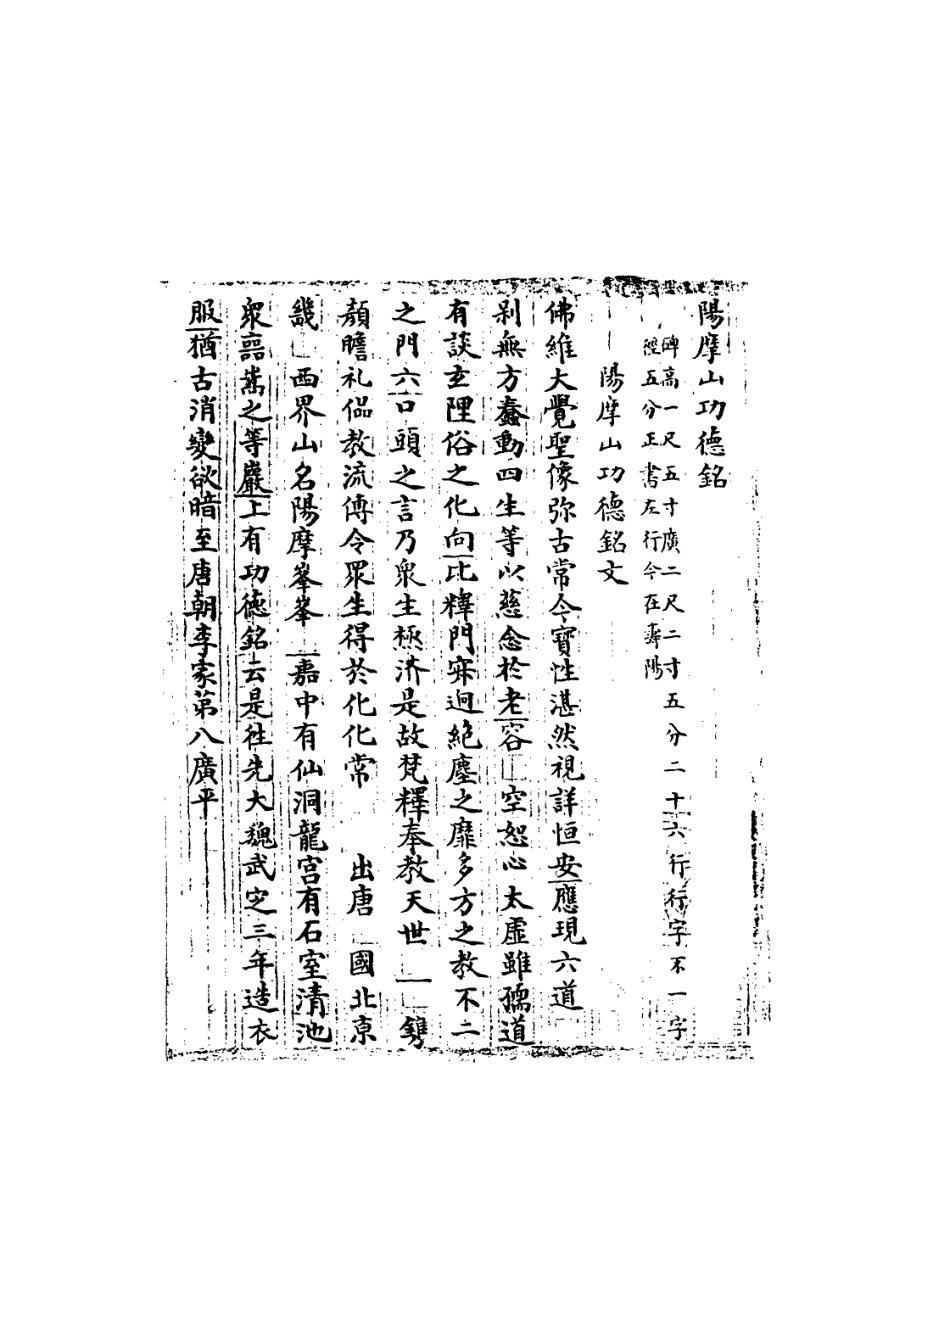 陽摩山功德銘
碑高一尺五寸廣二尺二寸五分二十六行行字不一字
徑五分正書左行今在壽陽
陽摩山功德銘文
佛維大覺聖像弥古常今寶性湛然視詳恒安應現六道
剎無方蠢動四生等以慈念於老容 空恕心太虛雖孺道
有談玄理俗之化向比釋門寂迥絕塵之靡多方之教不二
之門六口頭之言乃衆生極济是故梵釋奉教天世 鐫
顏瞻礼侣教流傳令眾生得於化化常 出唐 國北京
畿 西界山名陽摩峯峯 嘉中有仙洞龍宮有石室清池
衆 嵩之等巖上有功德銘云是往先大魏武定三年造衣
服猶古消變欲暗至唐朝李家第八廣平